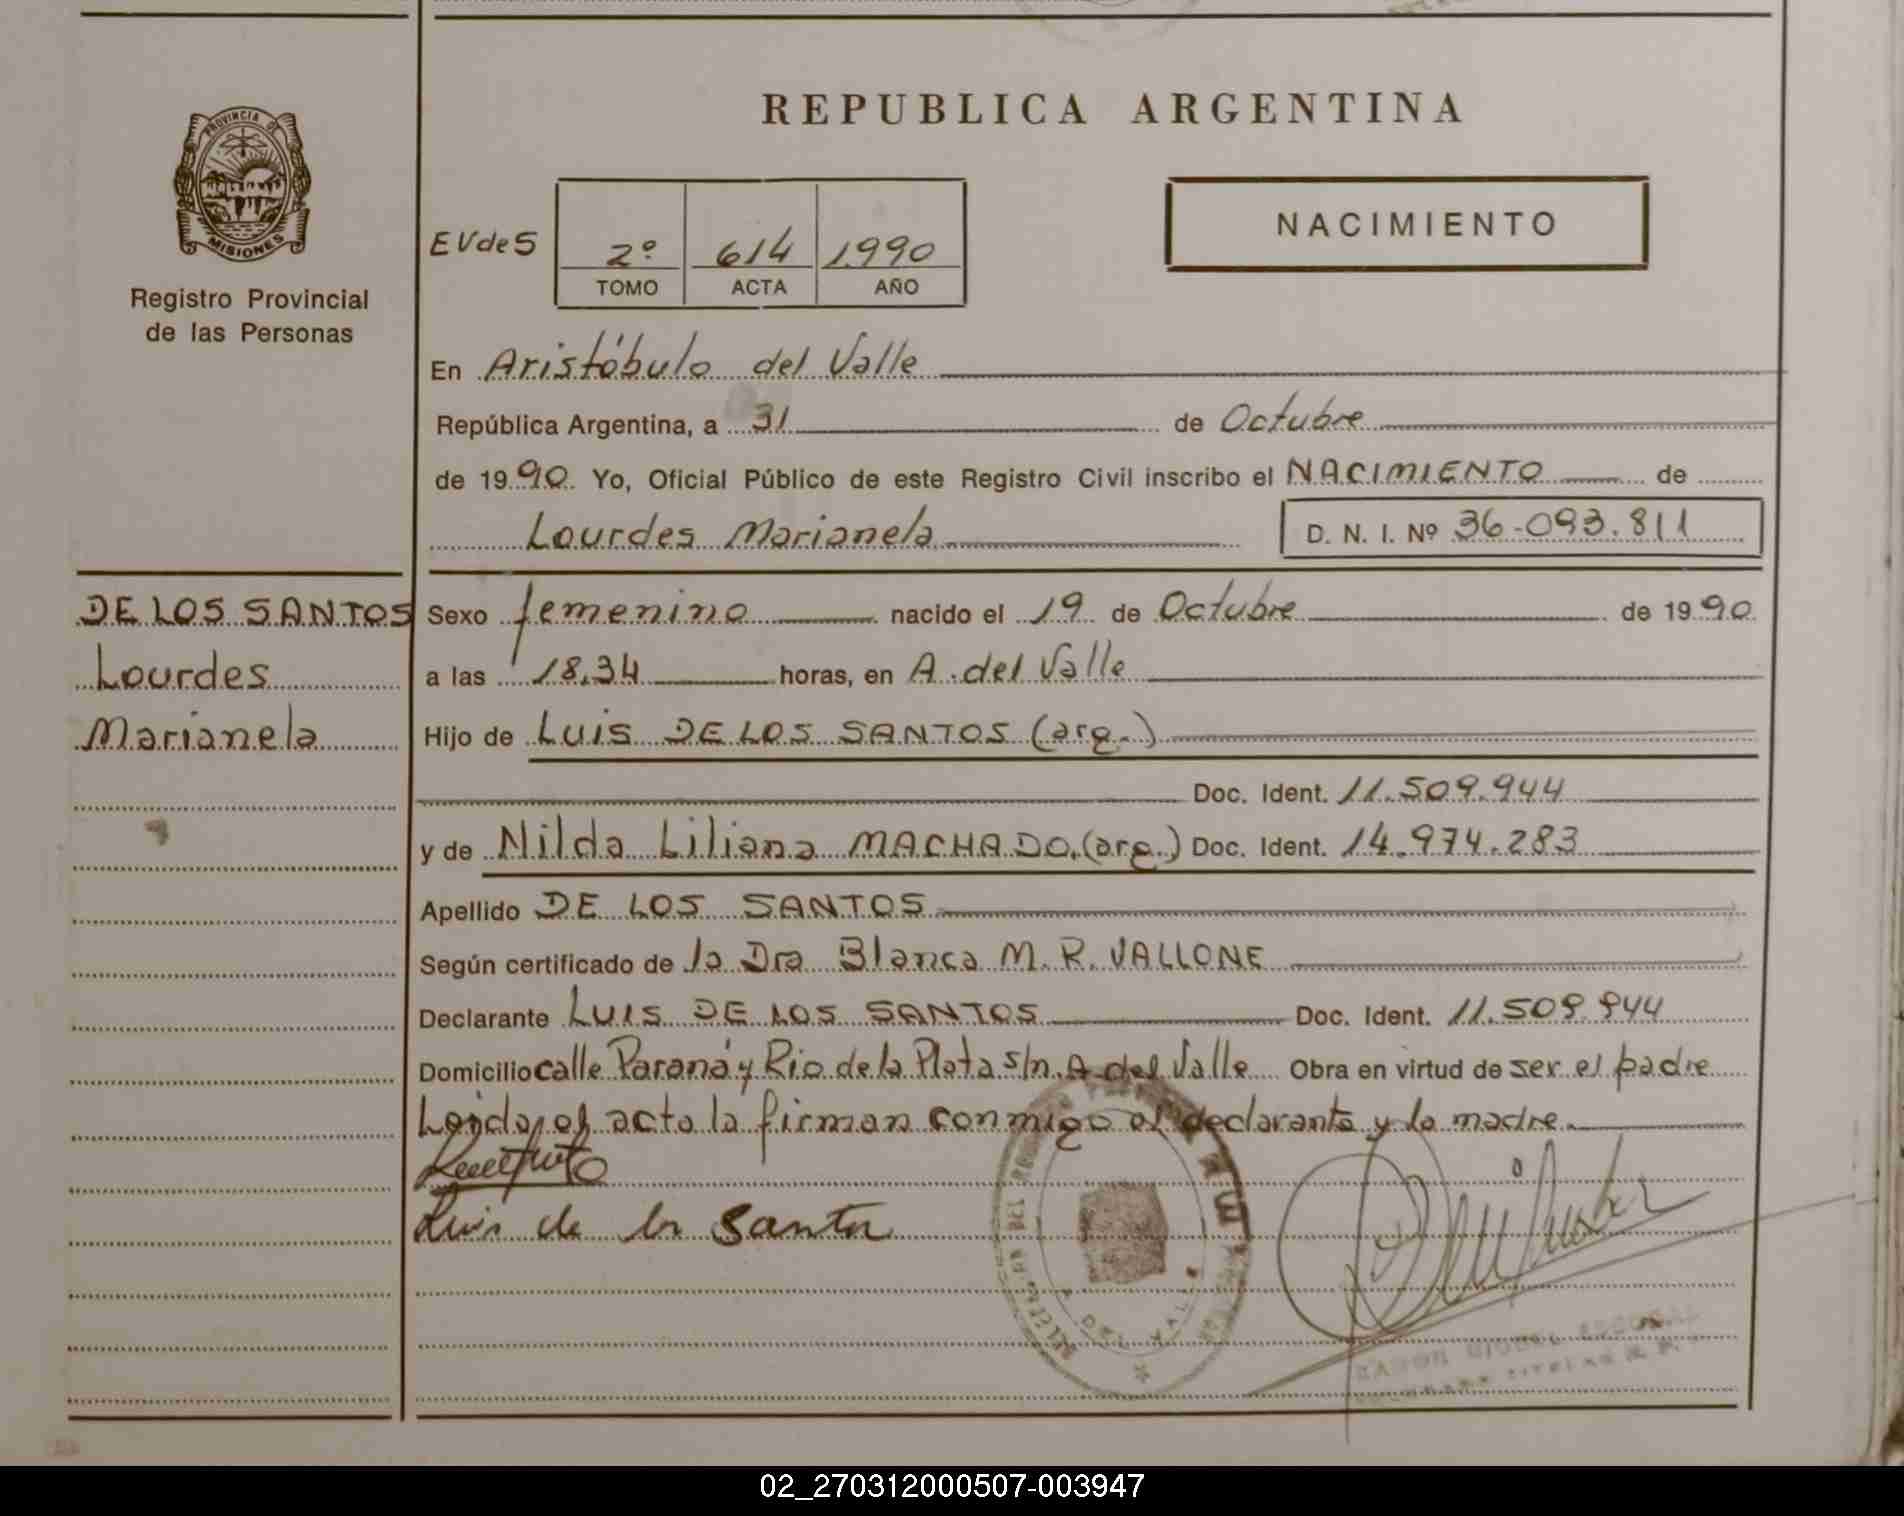 REPUBLICA ARGENTINA
PROVINCIA DE
MISIONES
Registro Provincial
de las Personas
EVdeS
2º 614 1990
TOMO ACTA AÑO
NACIMIENTO
En Aristóbulo del Valle
República Argentina, a 31 de Octubre
de 1990 Yo, Oficial Público de este Registro Civil inscribo el NACIMIENTO de
Lourdes Marianela D. N. I. Nº 36.093.811
DE LOS SANTOS
Lourdes
Marianela
Sexo femenino nacido el 19 de Octubre de 1990
a las 18,34 horas, en A. del Valle
Hijo de Luis DE LOS SANTOS (arg.)
Doc. Ident. 11.509.944
y de Nilda Liliana MACHADO (arg.) Doc. Ident. 14.974.283
Apellido DE LOS SANTOS
Según certificado de la Dra Blanca M. R. VALLONE
Declarante LUIS DE LOS SANTOS Doc. Ident. 11.509.944
Domicilio calle Paraná y Rio de la Plata s/n. A. del Valle Obra en virtud de ser el padre
Leida el acta la firman conmigo el declarante y la madre.
Luis de los Santos
02_270312000507-003947